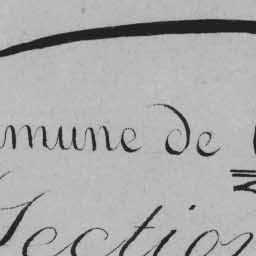 mmune de
Section